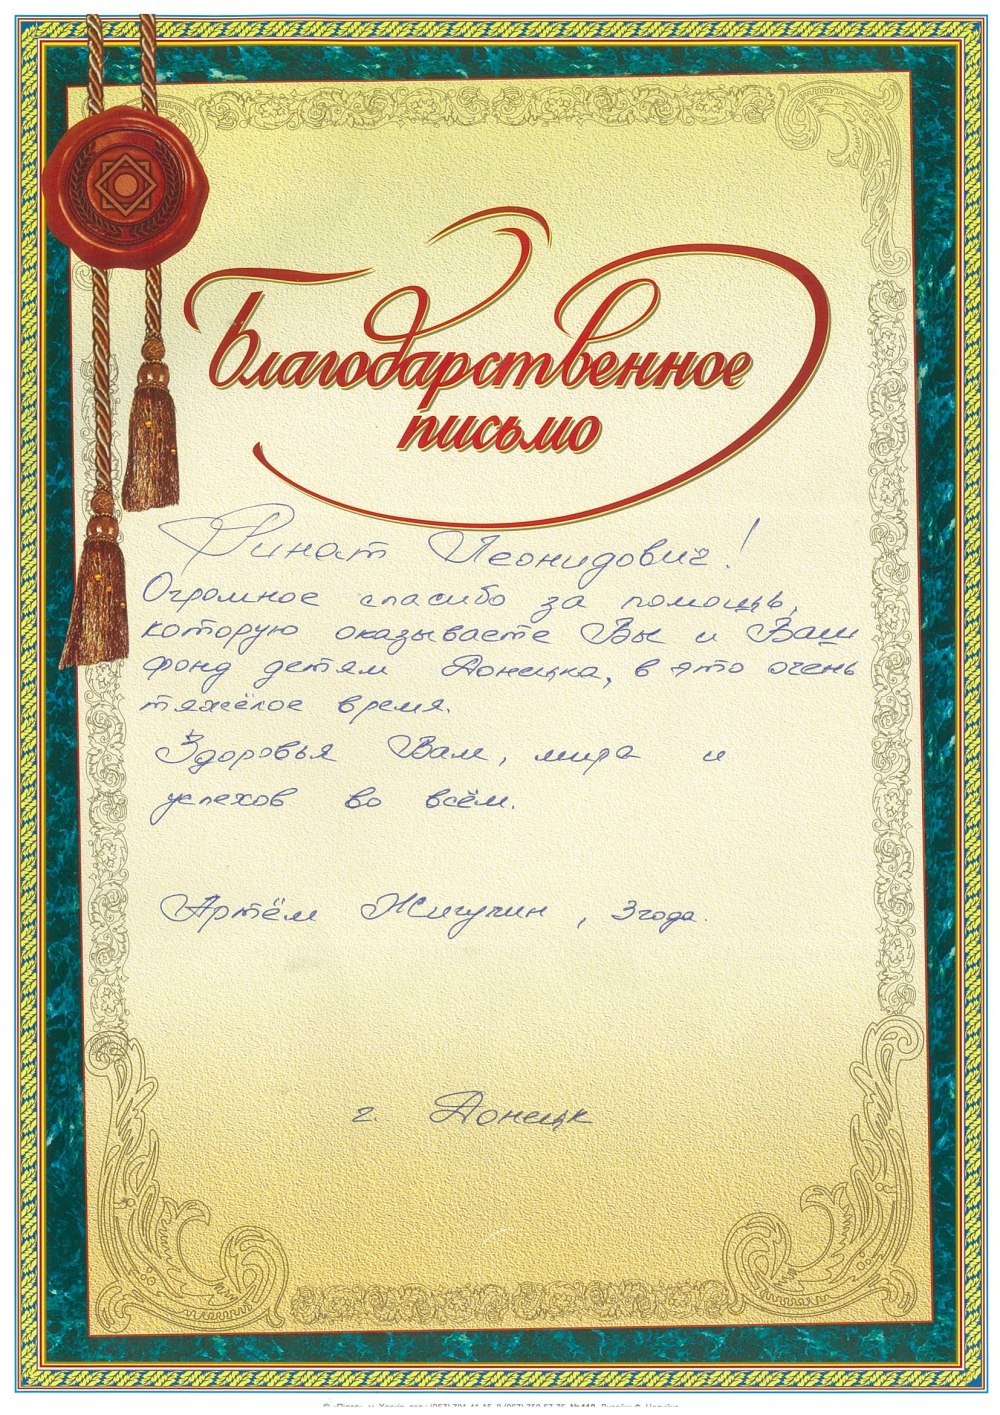 Благодарственное
письмо
Ринат Леонидович!
Огромное спасибо за помощь,
которую оказываете Вы и Ваш
фонд детям Донецка, в это очень
тяжёлое время.
Здоровья Вам, мира и
успехов во всём.
Артём Жигулин, 3 года.
г. Донецк